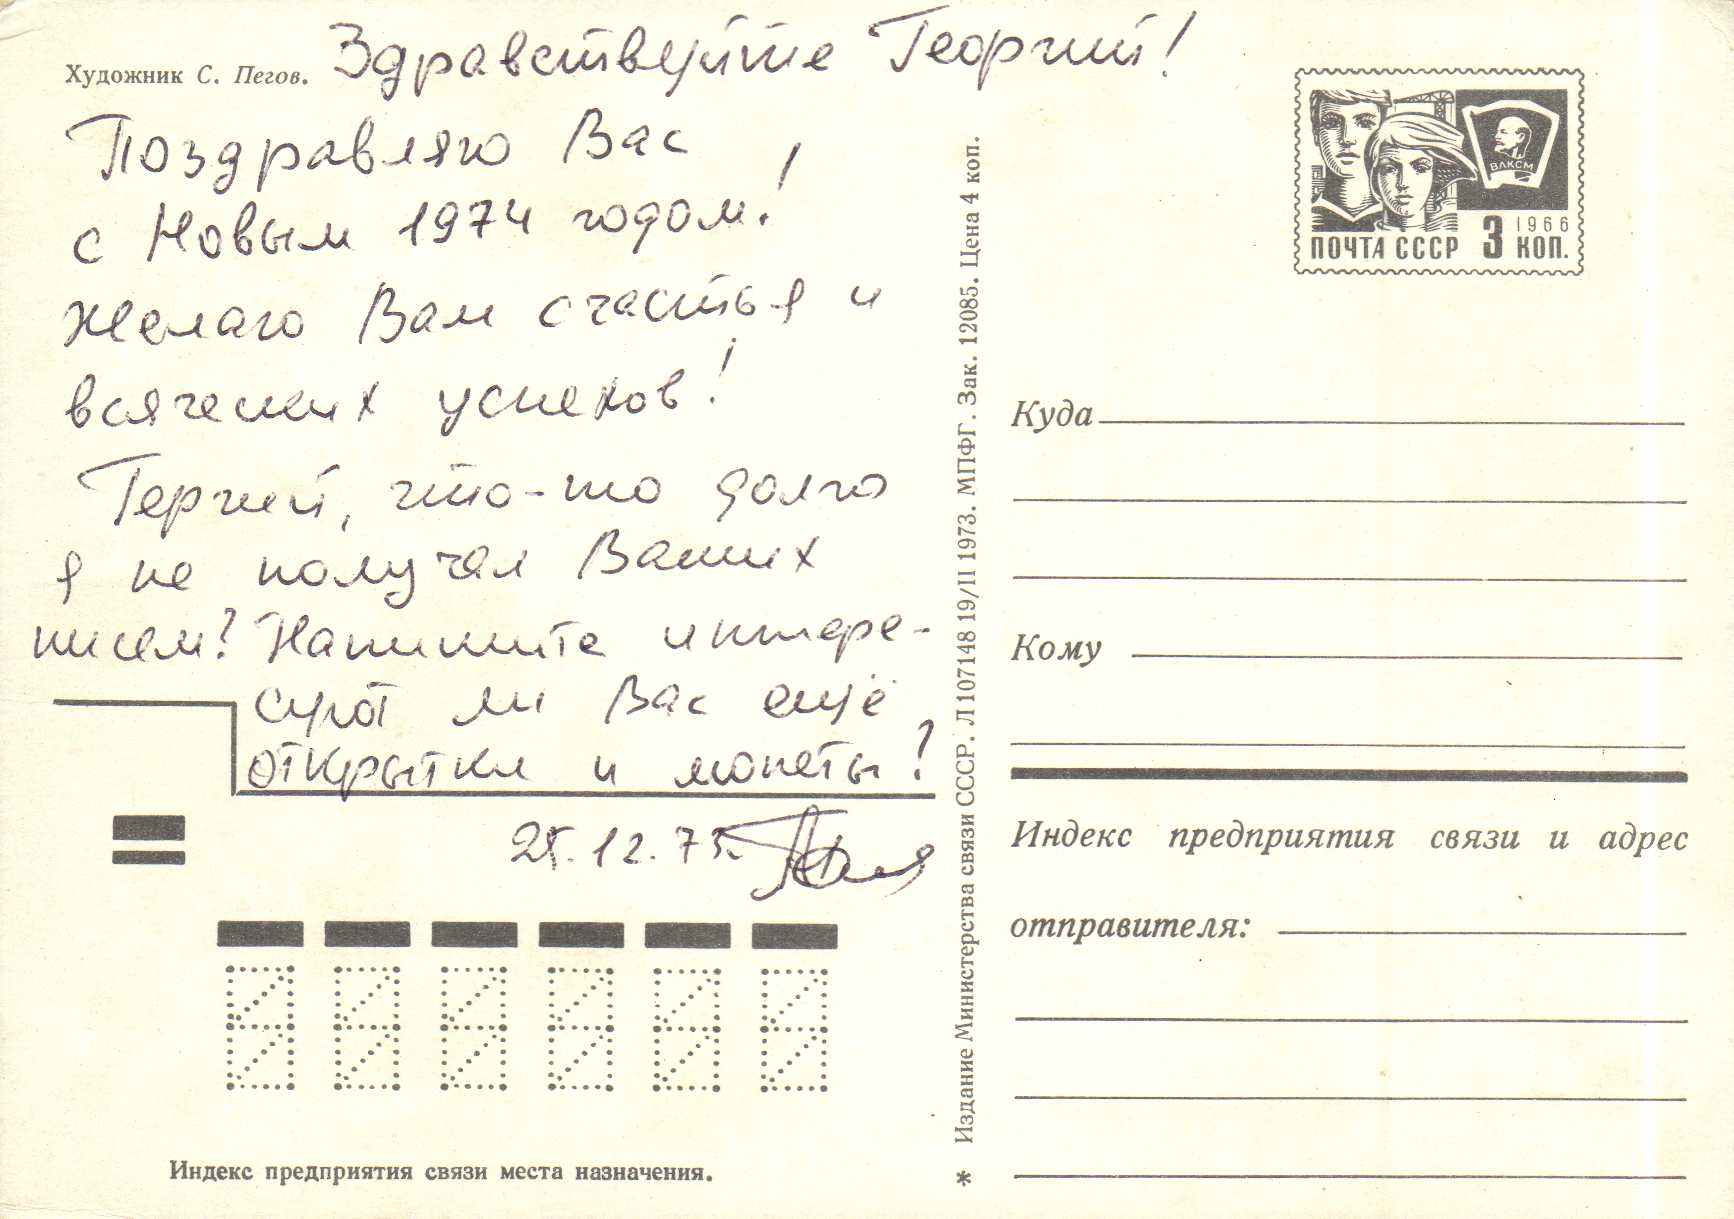 Художник С. Пегов.
Здравствуйте Георгий!
Поздравляю Вас
с Новым 1974 годом!
Желаю Вам счастья и
всяческих успехов!
Гергий, что-то долго
я не получал Ваших
писем? Напишите интере-
суют ли Вас ещё
открытки и монеты?
12.73.
Индекс предприятия связи места назначения.
Издание Министерства связи СССР. Л 107148 19/II 1973. МПФГ. Зак. 12085. Цена 4 коп.
*
ВЛКСМ
1966
ПОЧТА СССР 3 КОП.
Куда
Кому
Индекс предприятия связи и адрес
отправителя: